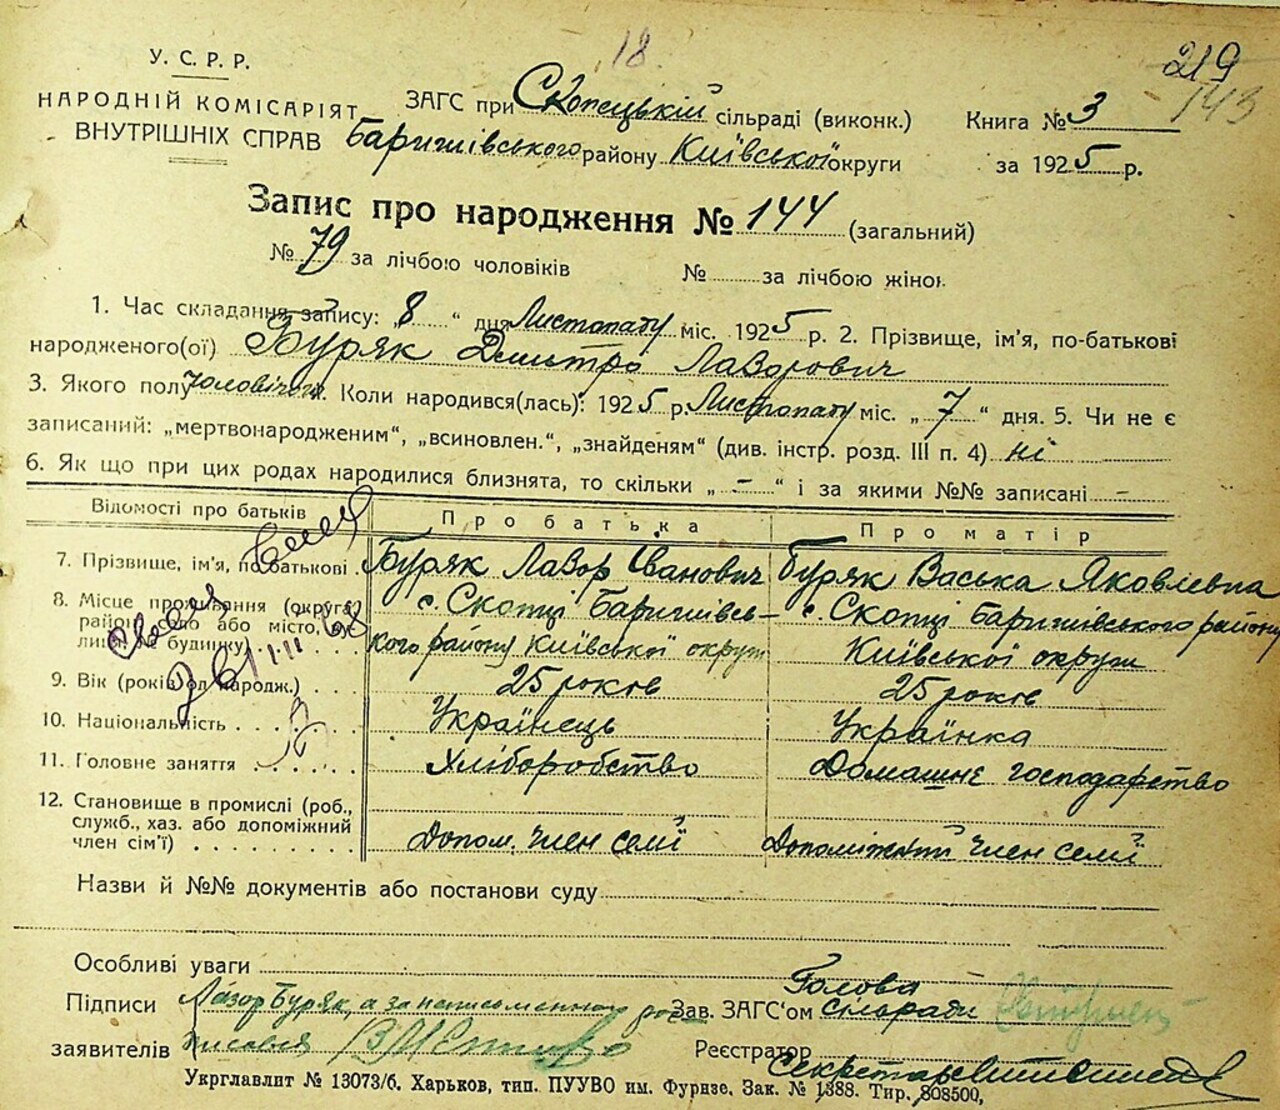 18.
219
143
У.С.Р.Р.
НАРОДНІЙ КОМІСАРІЯТ
ВНУТРІШНІХ СПРАВ
ЗАГС при Скопецькій сільраді (виконк.) Книга № 3
Баришівського району Київської округи за 1925 р.
Запис про народження № 144 (загальний)
№ 79 за лічбою чоловіків № за лічбою жінок
1. Час складання запису: „8“ дня Листопаду міс. 1925 р. 2. Прізвище, ім'я, по-батькові
народженого(ої) Буряк Дмитро Лаворович
3. Якого полу чоловічого. Коли народився(лась): 1925 р. Листопаду міс. „7“ дня. 5. Чи не є
записаний: „мертвонародженим“, „всиновлен.“, „знайденям“ (див. інстр. розд. III п. 4) ні
6. Як що при цих родах народилися близнята, то скільки „-“ і за якими №№ записані -
Відомості про батьків Про батька Про матір
7. Прізвище, ім'я, по-батькові Буряк Лавор Іванович Буряк Васька Яковлевна
8. Місце проживання (округа, с. Скопці Баришівсь- с. Скопці Баришівського району
район, село або місто, кого району Київської округи Київської округи
будинку)
9. Вік (років од народж.) 25 років 25 років
10. Національність Українець Українка
11. Головне заняття Хліборобство Домашнє господарство
12. Становище в промислі (роб.,
служб., хаз. або допоміжний
член сім'ї) Допом. член семї Допоміжний член семї
Назви й №№ документів або постанови суду
Особливі уваги
Голова
Підписи Лавор Буряк, а за неписьменного Зав. ЗАГС'ом сільради
заявителів Реєстратор
Секретарь
Укрглавлит № 13073/б. Харьков, тип. ПУУВО им. Фрунзе. Зак. № 1388. Тир. 808500,